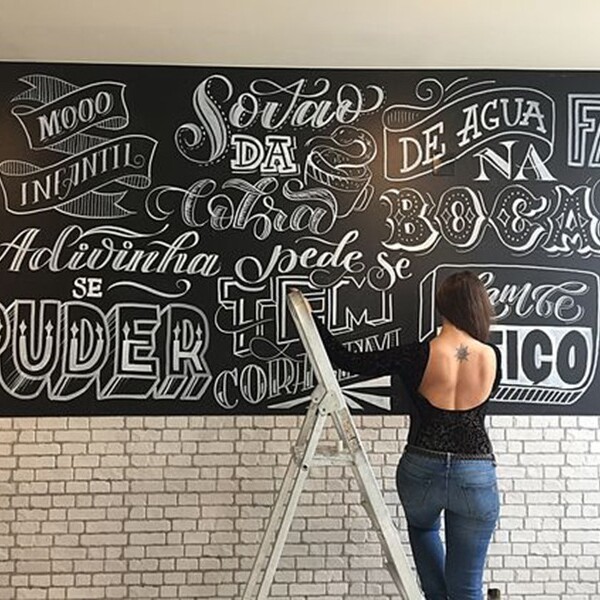 MOOO
INFANTIL
Sovaco
DA
Cobra
DE AGUA
NA
BOCA
Adivinha
SE
PUDER
pede
se
TEM
CORAGEM
Lambe